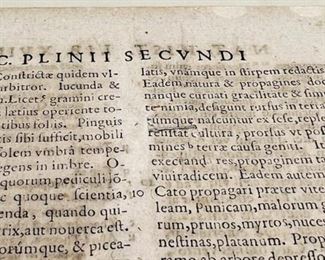 C. PLINII SECVNDI
Constrictæ quidem vl-
arbitror. Iucunda &
u. Licet gramini cre-
latius operiente to-
tibus foliis. Pinguis
tis sibi sufficit, mobili
folem vmbra tempe-
gens in imbre. O-
quorum pediculi lo-
c quoque scientia,
enda, quando qui-
rix, aut nouerca est.
orúmque, & picea-
latis, vnámque in stirpem redactis
Eadem natura & propagines do
namque curuati gracilitate & sim
in terram, desigunt rursus in terra
nascuntur ex sese, repleu
cultura, prorsus vt po
mines b tetræ causa geniu. In
execrand res, propagatio
viuiradicem. Eadem autem
Cato propagari præter vite
10 leam, Punicam, malorum g
rum, prunos, myrtos, nuce
nestinas, platanum. Propag
ab arbore depressio